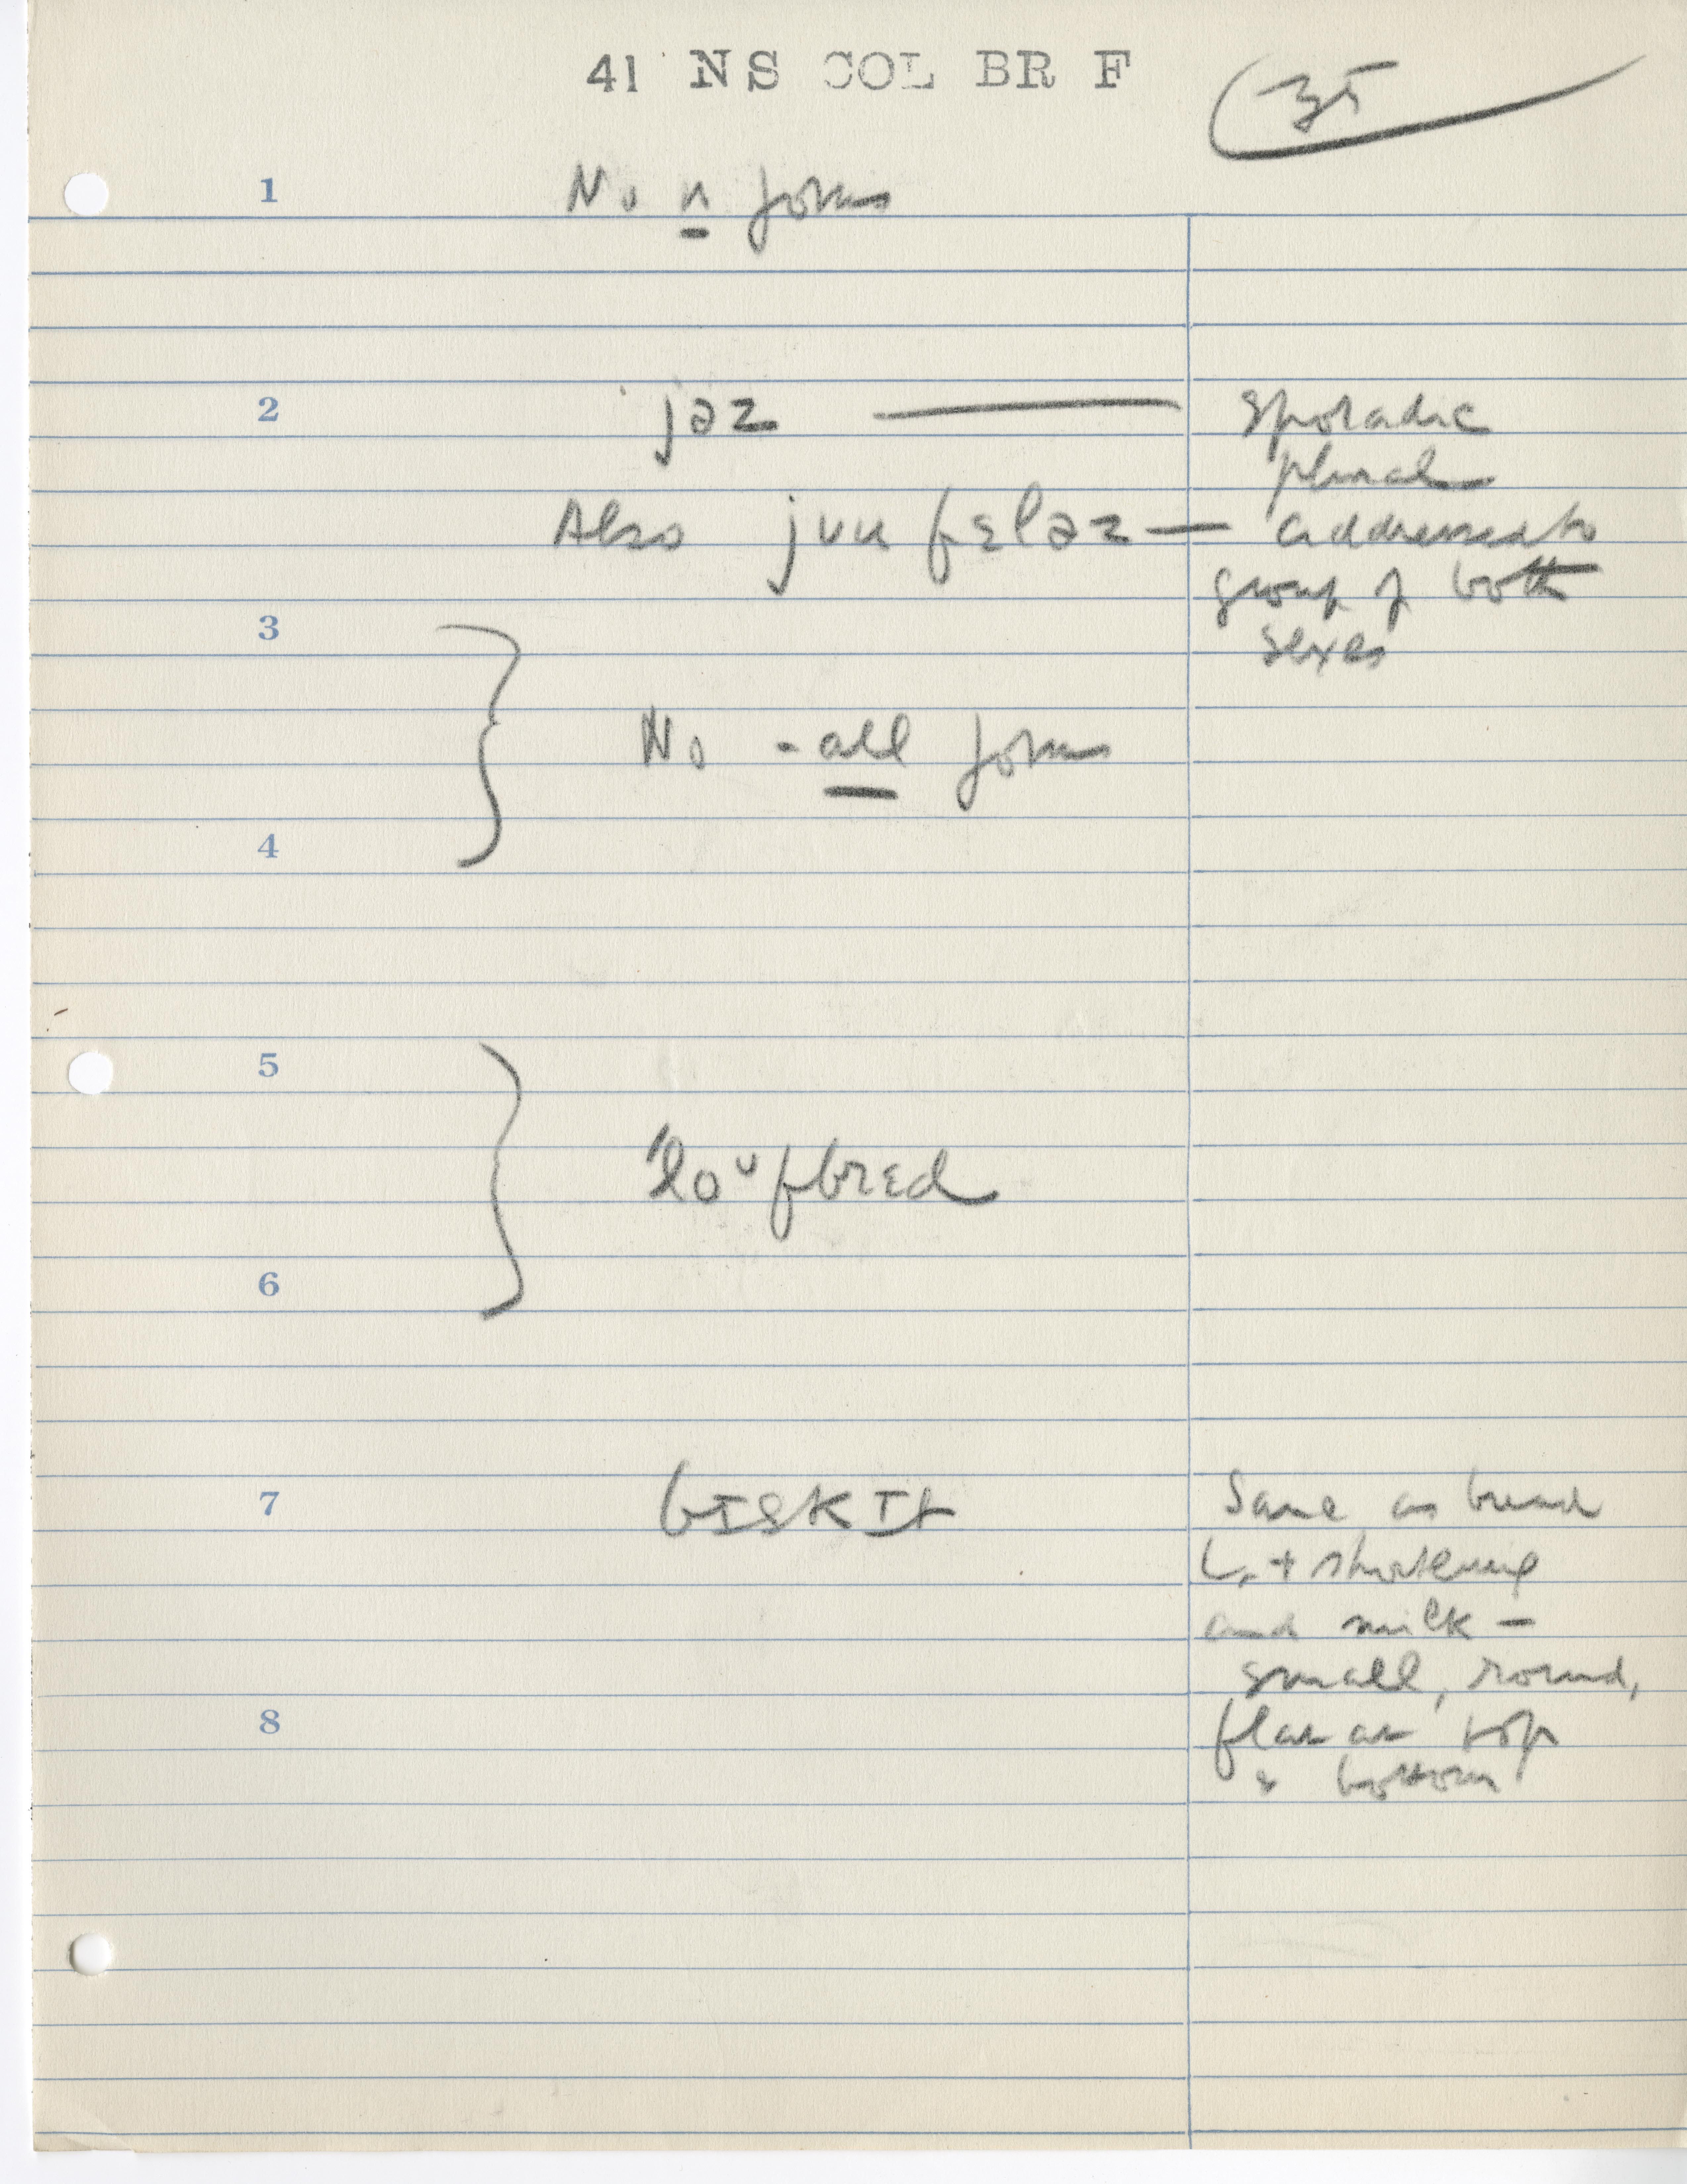 41 NS COL BR F
35
1 No n forms
2 jəz — sporadic
plural
Also juu fɛləz — addressed to
group of both
3 sexes
No -all forms
4
5
ˈloᵘfbrɛd
6
7 bɪskɪt Same as bread
+ shortening
and milk —
small, round,
8 flat at top
& bottom